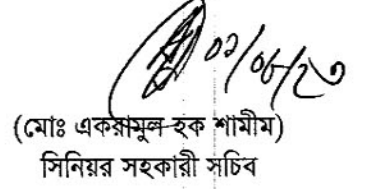 ০১/০৮/২৩
(মোঃ একরামুল হক শামীম)
সিনিয়র সহকারী সচিব